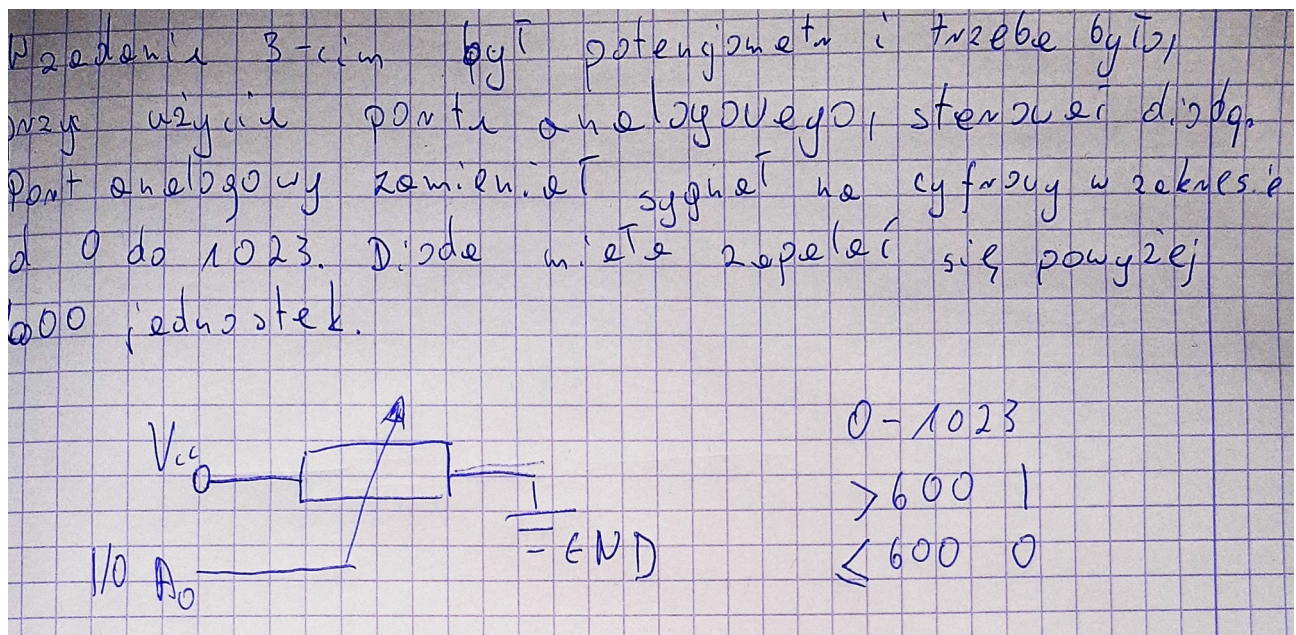 W zadaniu 3-cim był potencjometr i trzeba było,
przy użyciu portu analogowego, sterować diodą.
Port analogowy zamieniał sygnał na cyfrowy w zakresie
d 0 do 1023. Dioda miała zapalać się powyżej
600 jednostek.
Vcc
0-1023
>600 1
GND
≤600 0
I/O A0